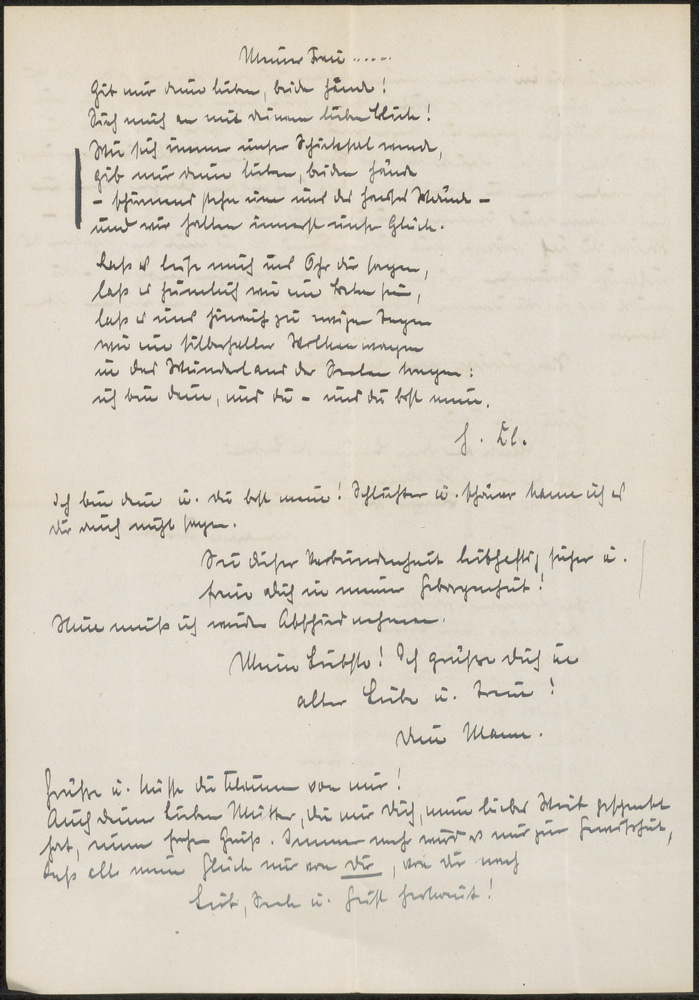 Meiner Frau .....
Gib mir deine lieben, beiden Hände!
Sieh mich an mit deinem lieben Blick!
Wie sich immer unser Schicksal wende,
gib mir deine lieben, beiden Hände
– schirmend stehn um uns des Hauses Wände –
und wir halten innerst unser Glück.
Laß es leise mich ins Ohr dir sagen,
laß es heimlich wie ein beten sein,
laß es uns hinauf zu ewigen Tagen
wie ein silberheller Wolkenwagen
in das Wunderland der Seelen tragen:
ich bin dein, und du – und du bist mein.
H. Cl.
Ich bin dein u. du bist mein! Schlichter u. schöner kann ich es
dir auch nicht sagen.
In dieser Verbundenheit leibhaftig sicher u.
freue dich in meiner Geborgenheit!
Nun muß ich wieder Abschied nehmen.
Meine Liebste! Ich grüße dich in
alter Liebe u. Treue!
Dein Mann.
Grüße u. küsse die Kleinen von mir!
Auch deiner lieben Mutter, die mir dich, mein liebes Weib geschenkt
hat, einen frohen Gruß. Immer mehr wird es mir zur Gewißheit,
daß all mein Glück nur von dir, von dir nach
Leib, Seele u. Geist herkommt!